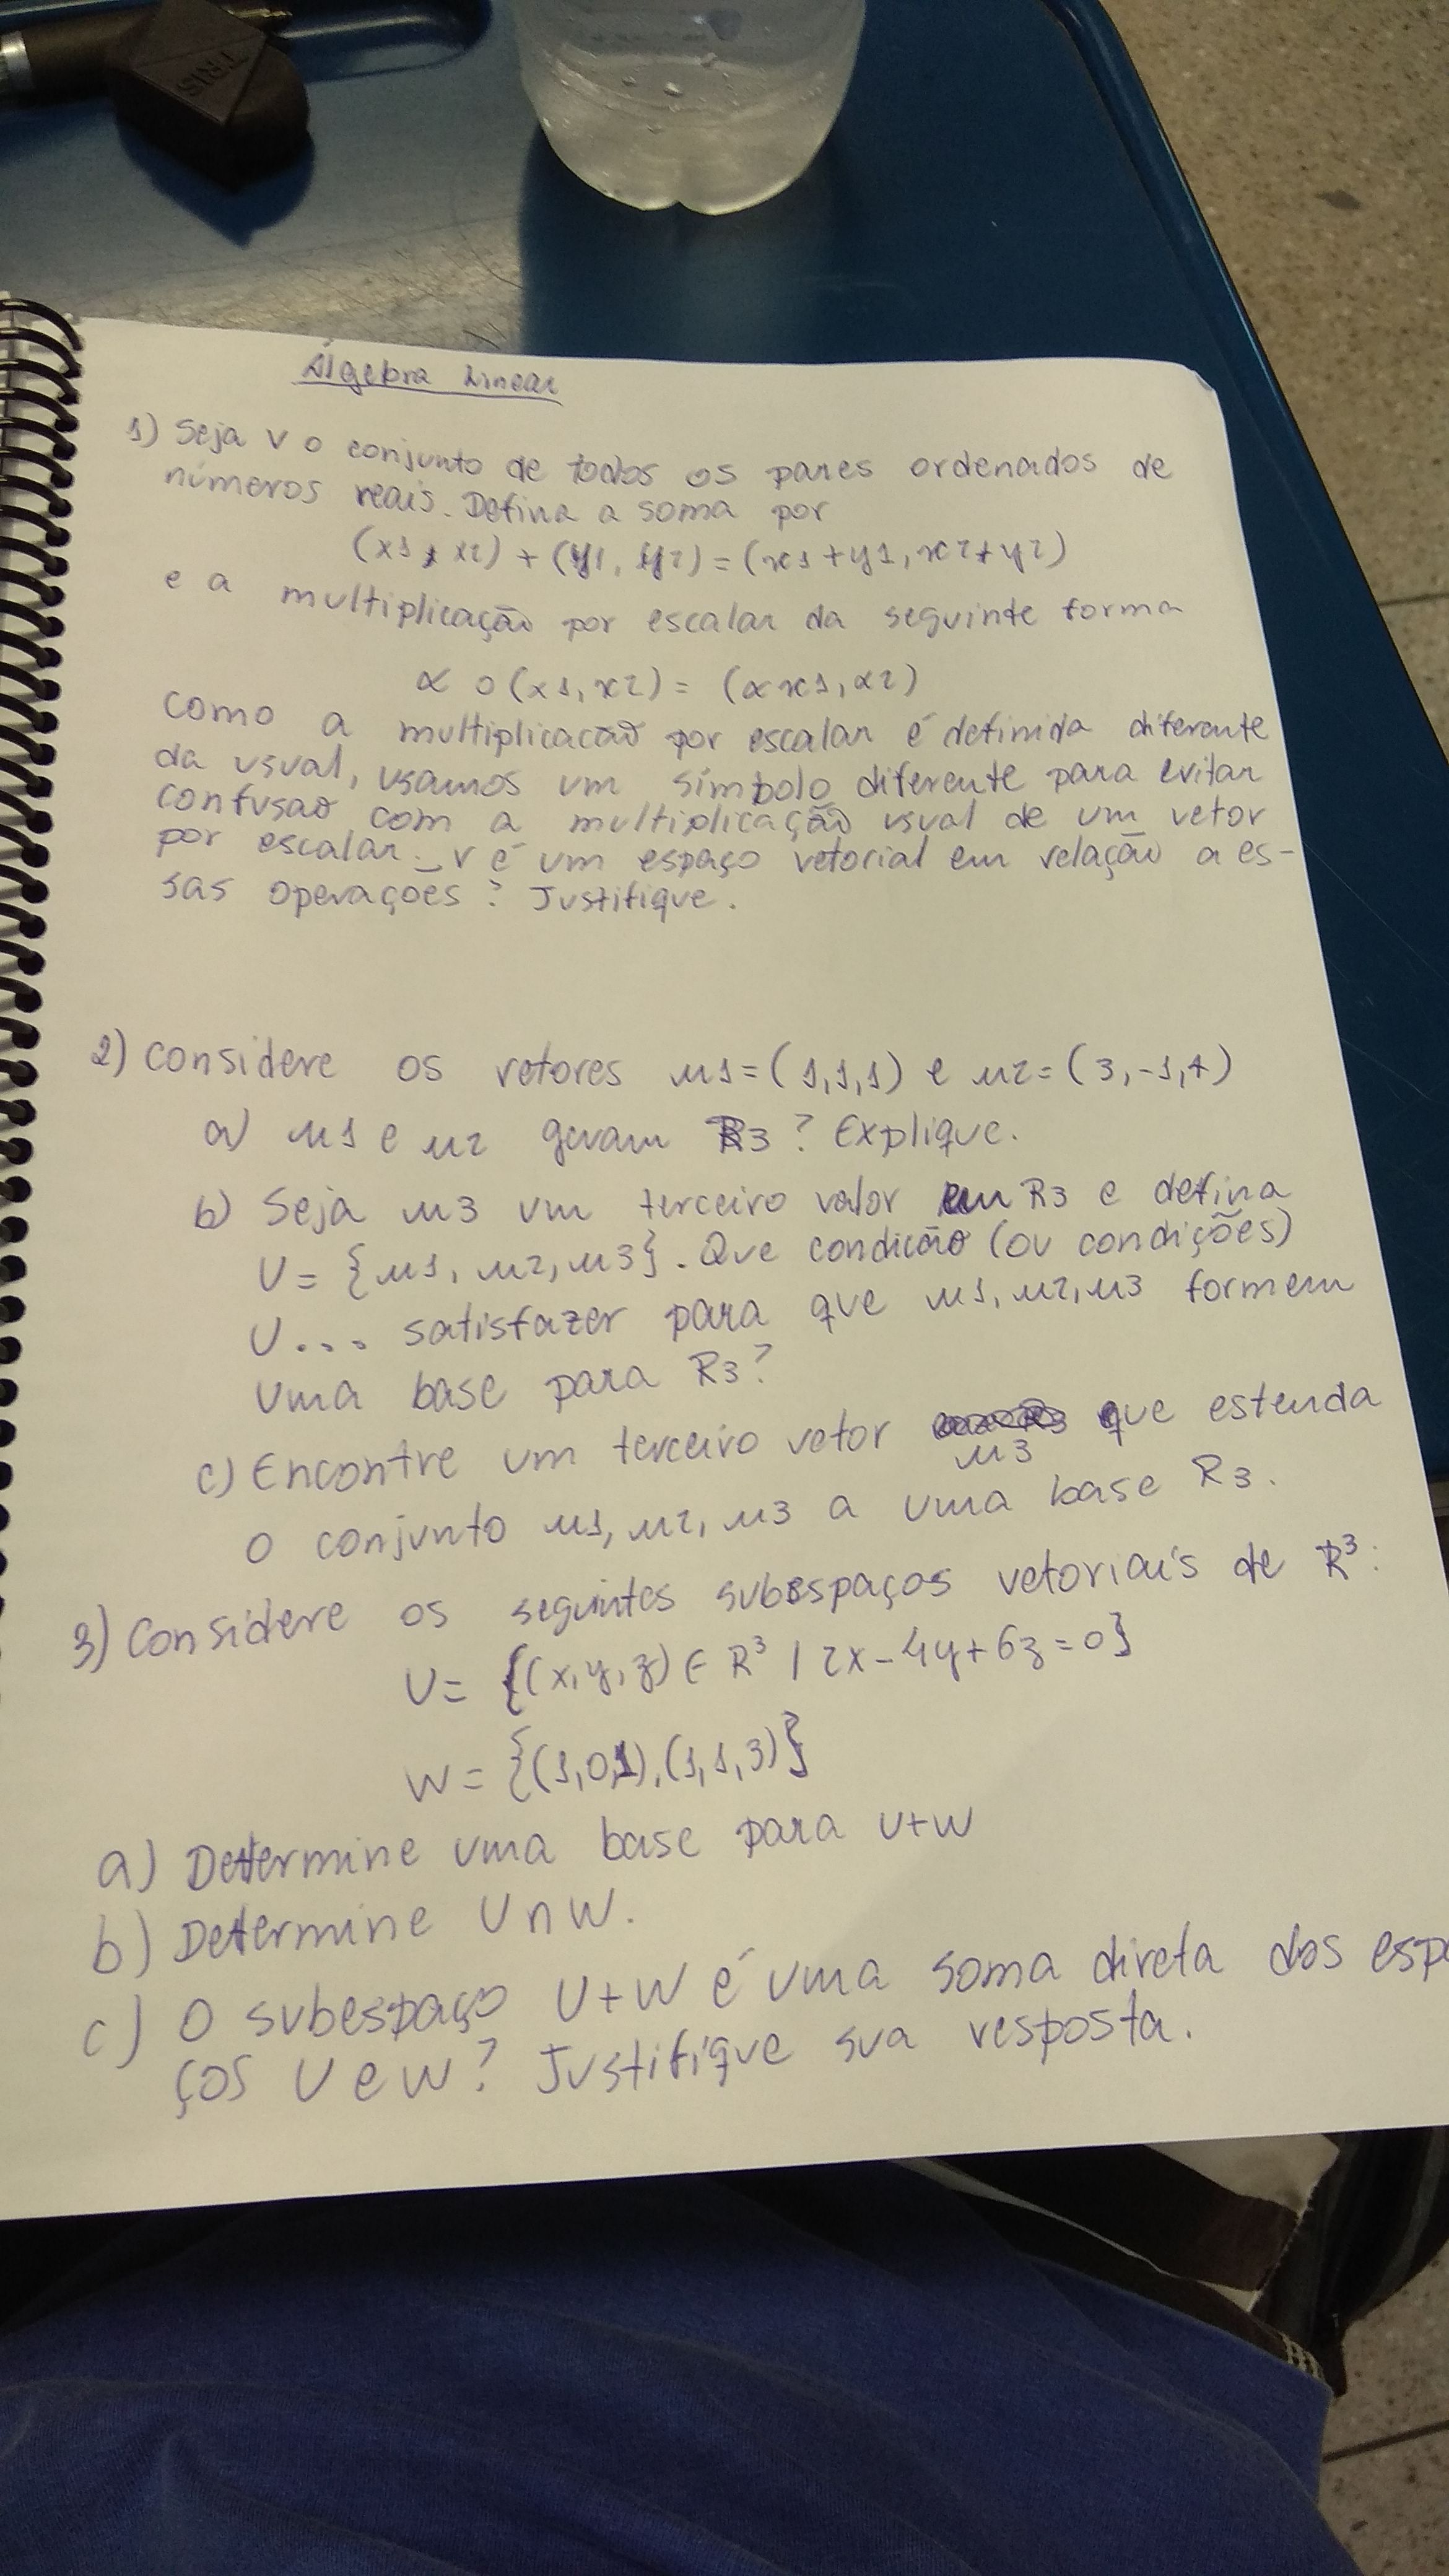 TRIS
Álgebra Linear
1) Seja V o conjunto de todos os pares ordenados de
números reais. Defina a soma por
(x1, x2) + (y1, y2) = (x1 + y1, x2 + y2)
e a multiplicação por escalar da seguinte forma
α o (x1, x2) = (αx1, α2)
Como a multiplicacão por escalar é definida diferente
da usual, usamos um símbolo diferente para evitar
confusão com a multiplicação usual de um vetor
por escalar. V é um espaço vetorial em relação a es-
sas operações? Justifique.
2) Considere os vetores u1 = (1,1,1) e u2 = (3,-1,4)
a) u1 e u2 geram R3? Explique.
b) Seja u3 um terceiro valor em R3 e defina
U = {u1, u2, u3}. Que condicão (ou condições)
U... satisfazer para que u1, u2, u3 formem
uma base para R3?
c) Encontre um terceiro vetor u3 que estenda
o conjunto u1, u2, u3 a uma base R3.
3) Considere os seguintes subespaços vetoriais de R³:
U = {(x,y,z) ∈ R³ / 2x - 4y + 6z = 0}
W = {(1,0,1),(1,1,3)}
a) Determine uma base para U+W
b) Determine U∩W.
c) O subespaço U+W é uma soma direta dos espa
ços U e W? Justifique sua resposta.